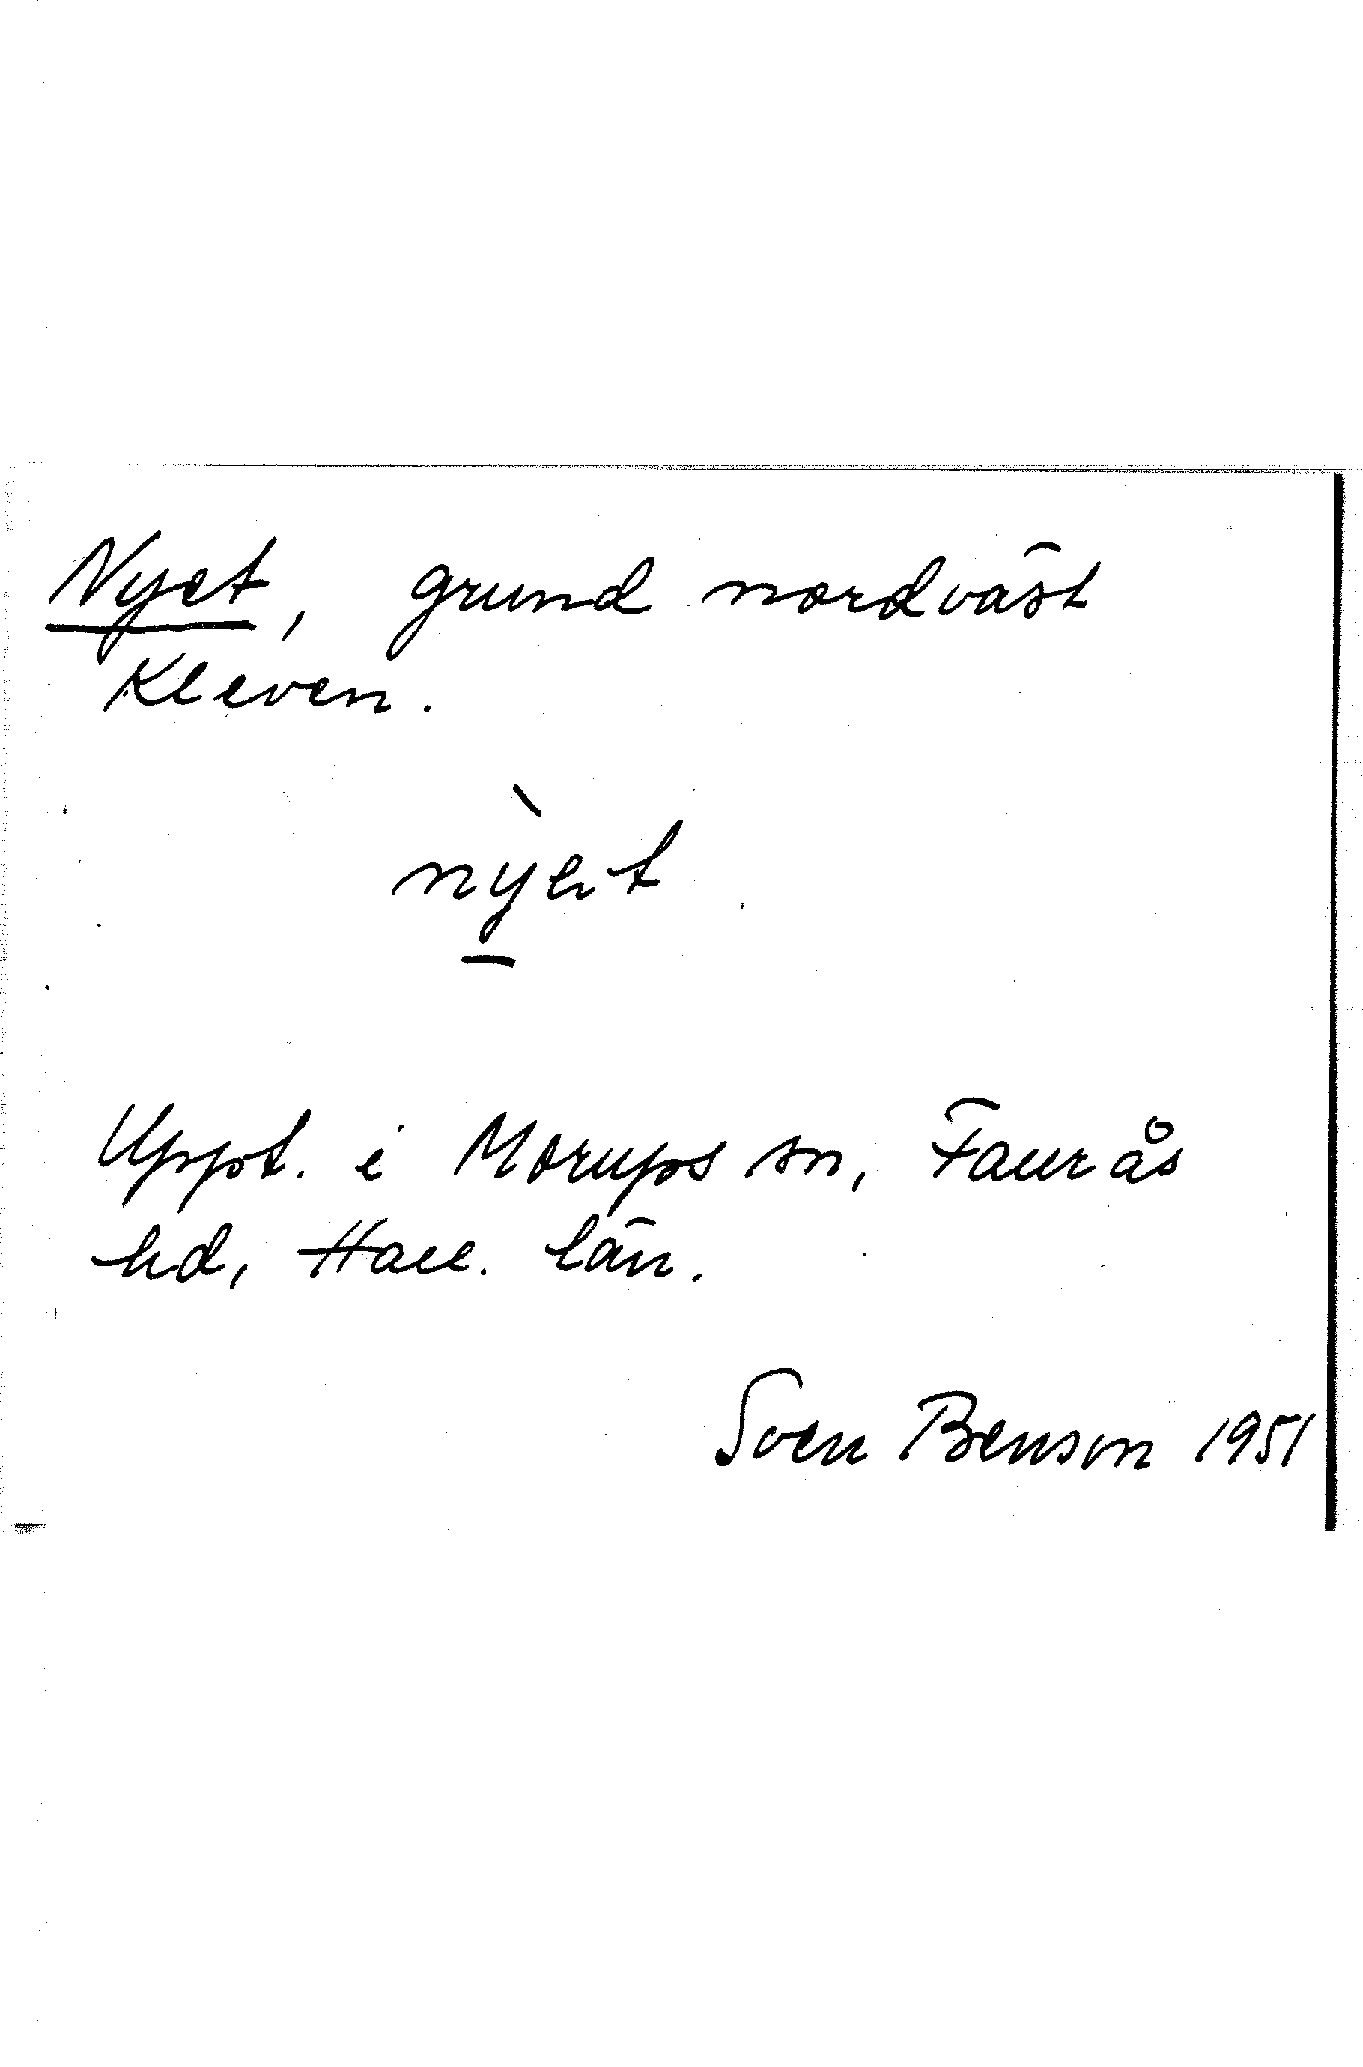 Nyet, grund nordväst
Kleven.
Uppt. i Morups sn, Faurås
hd, Hall. län.
Sven Benson 1951